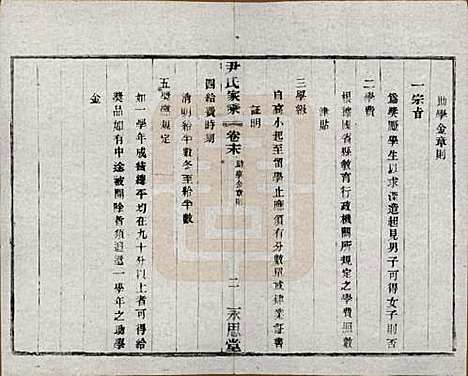 助學金章則
一宗旨
為奬勵學生以求深造起見男子可得女子則否
二學費
根據國省縣教育行政機關所規定之學費照數
津貼
三學級
自高小起至留學止應須有分數單或肄業証書
証明
尹氏家乘 卷末 助學金章則 二 永思堂
四給費時期
清明給半數冬至給半數
五奬懲規定
如一學年成績總平均在九十分以上者可得給
奬品如有中途被開除者須追還一學年之助學
金